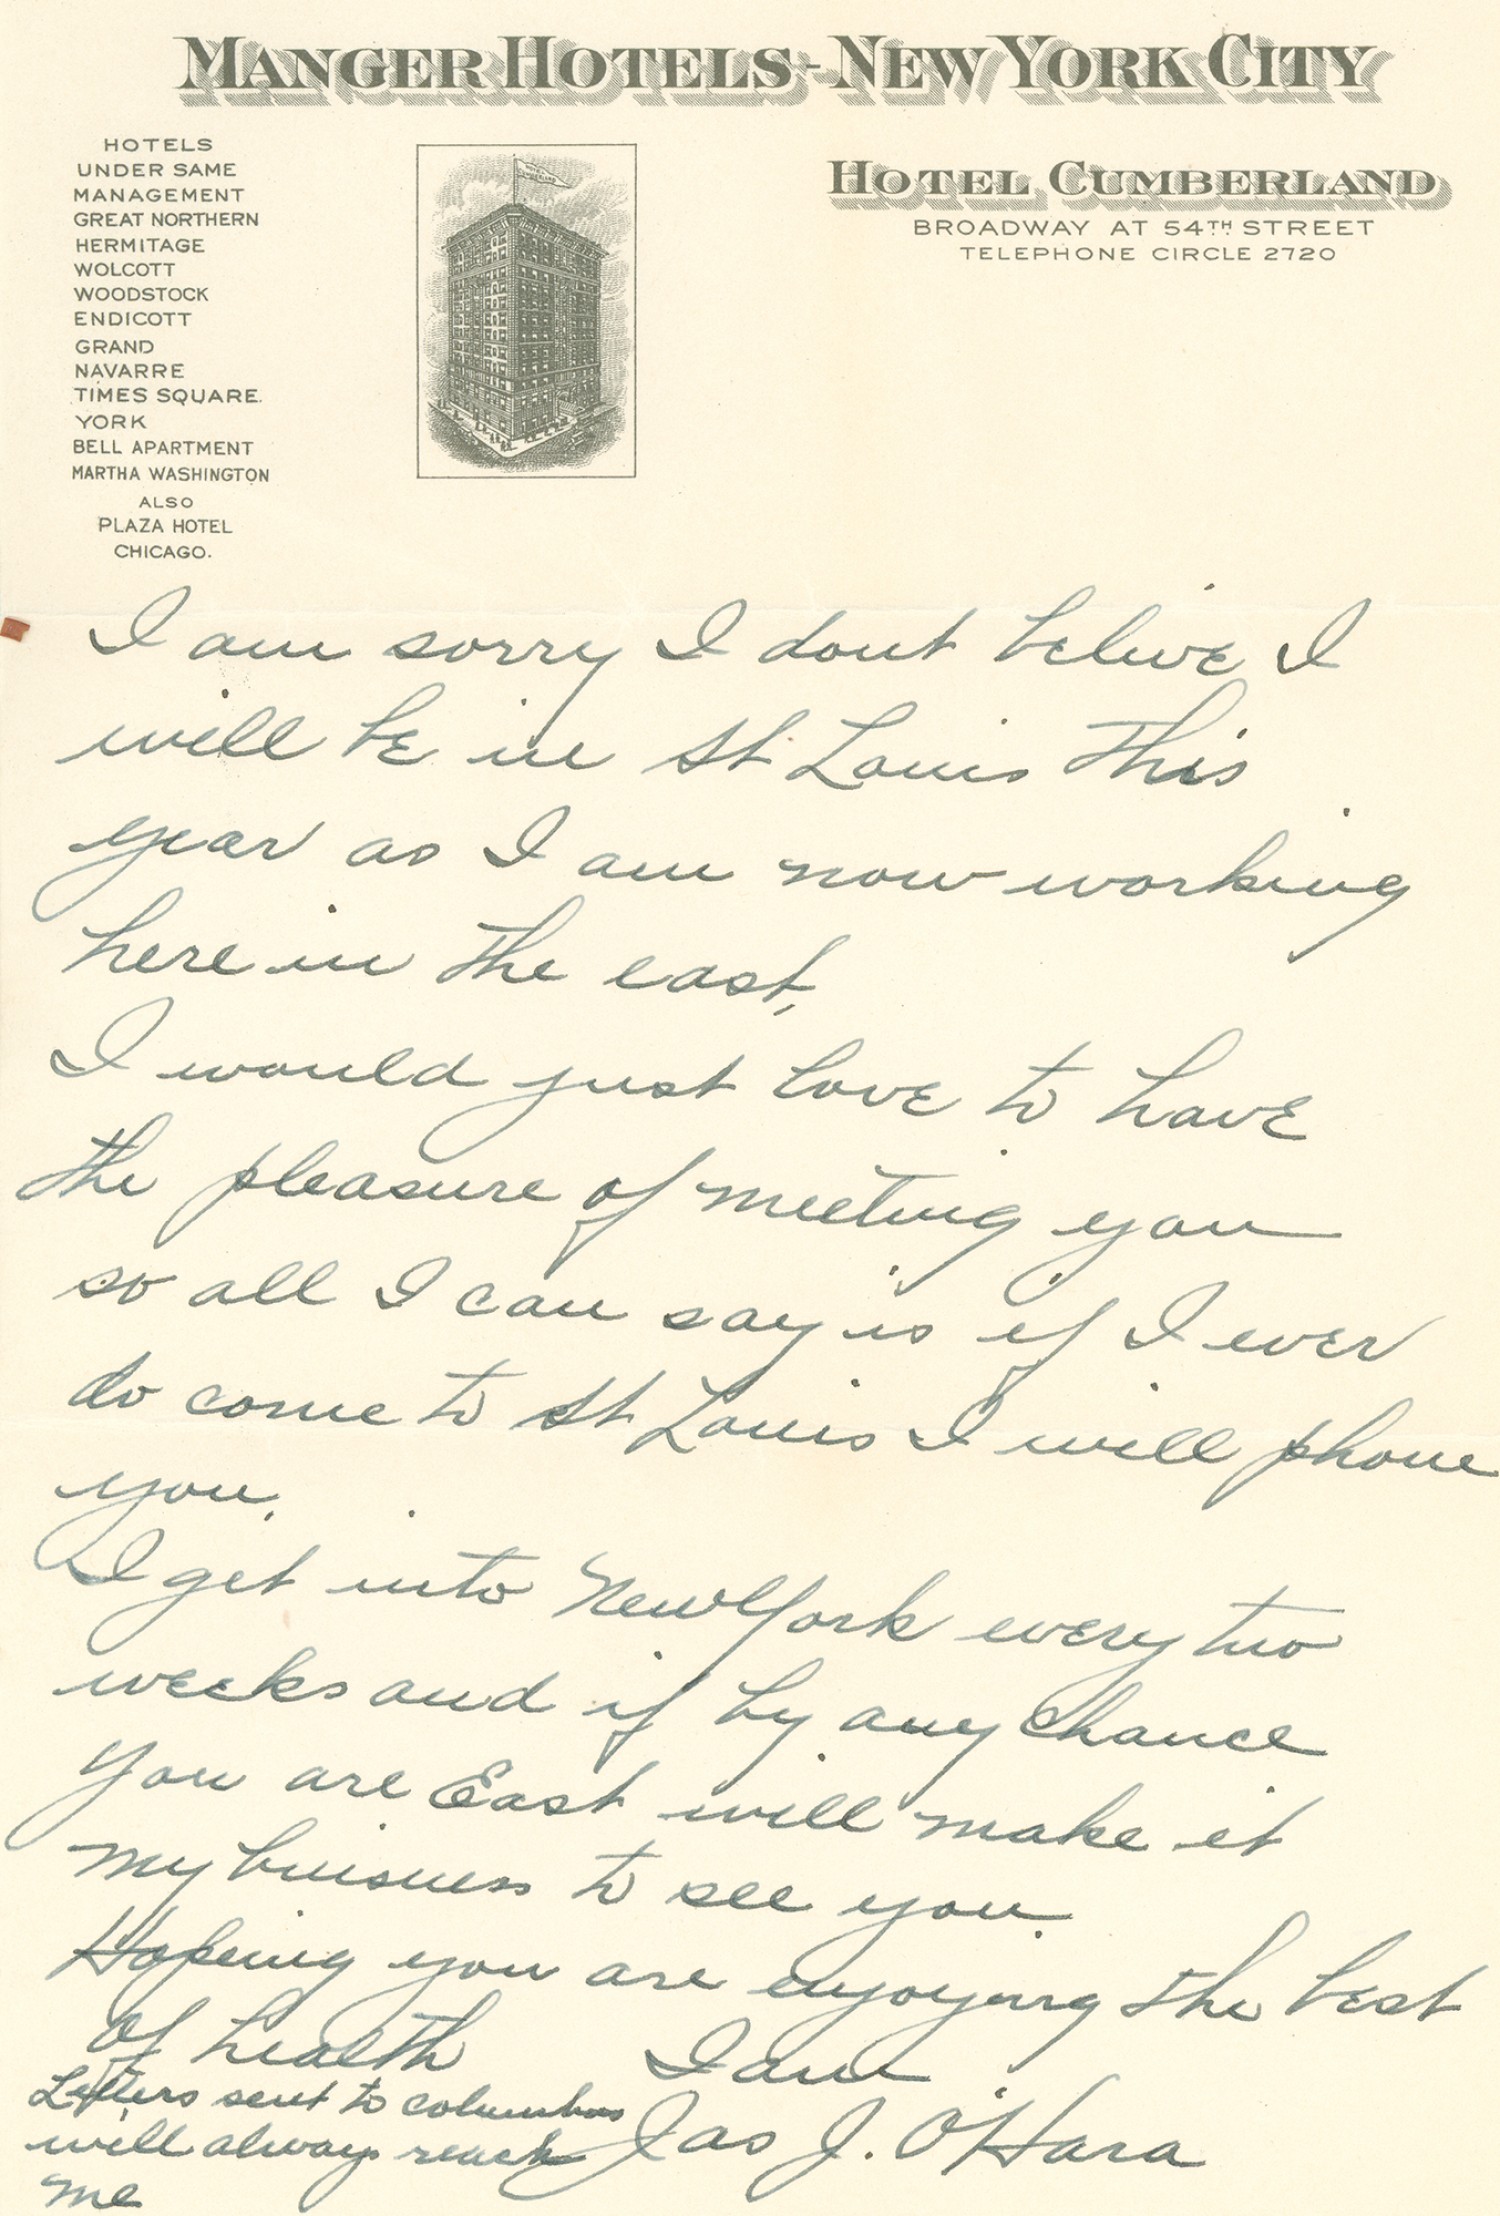 MANGER HOTELS-NEW YORK CITY
HOTELS
UNDER SAME
MANAGEMENT
GREAT NORTHERN
HERMITAGE
WOLCOTT
WOODSTOCK
ENDICOTT
GRAND
NAVARRE
TIMES SQUARE.
YORK
BELL APARTMENT
MARTHA WASHINGTON
ALSO
PLAZA HOTEL
CHICAGO.
HOTEL CUMBERLAND
HOTEL CUMBERLAND
BROADWAY AT 54TH STREET
TELEPHONE CIRCLE 2720
I am sorry I dont belive I
will be in St Louis this
year as I am now working
here in the east,
I would just love to have
the pleasure of meeting you
so all I can say is if I ever
do come to St Louis I will phone
you.
I get into New York every two
weeks and if by any chance
you are East will make it
my buisness to see you
Hopeing you are enjoying the best
of health
I am
Jas J. O'Hara
Letters sent to columbus
will always reach
me